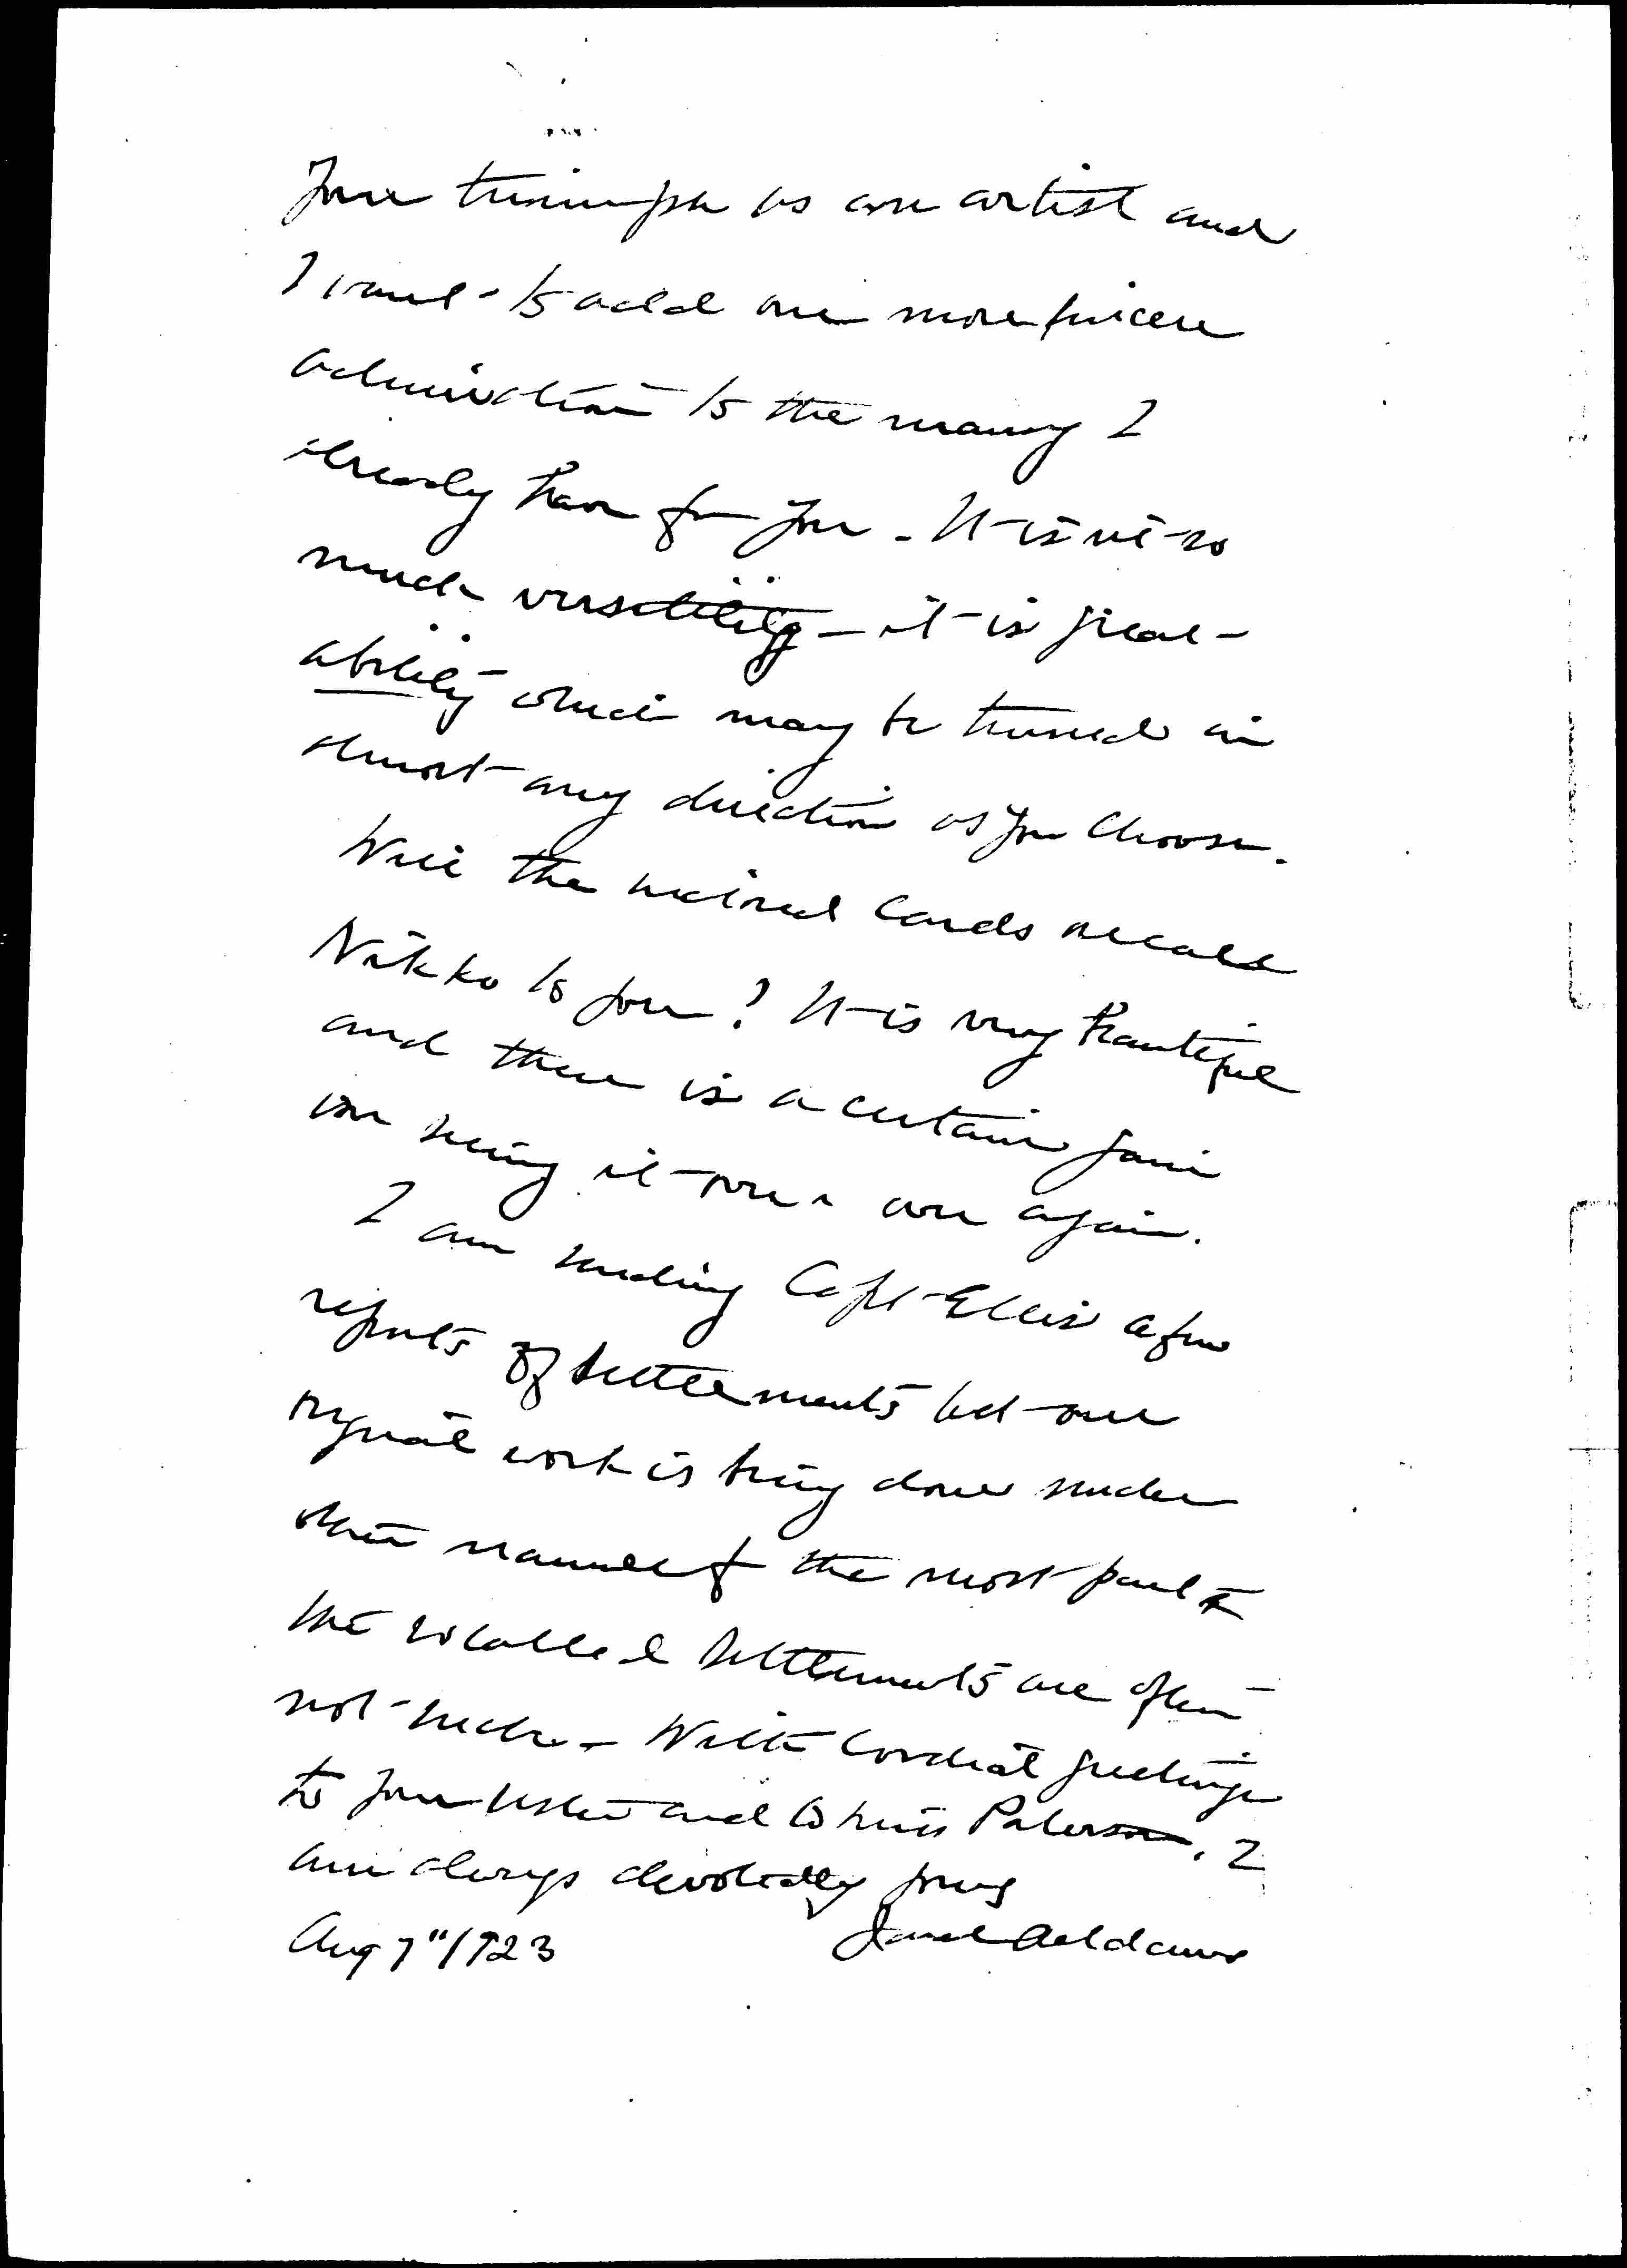 your triumph as an artist and
I want to add one more sincere
admiration to the many I
already have for you. It is not so
much versatility - it is great
ability which may be turned in
almost any direction as you choose.
Will the enclosed cards recall
Nikko to you? It is very beautiful
and there is a certain
in seeing it over again.
I am sending Capt Ellis a few
reports of settlements but our
work is being done under
other names for the most part &
the so called settlements are often
not such. With cordial greetings
to your sister and to Miss Paterson, I
am always devotedly yours
Aug 7" 1923 Jane Addams